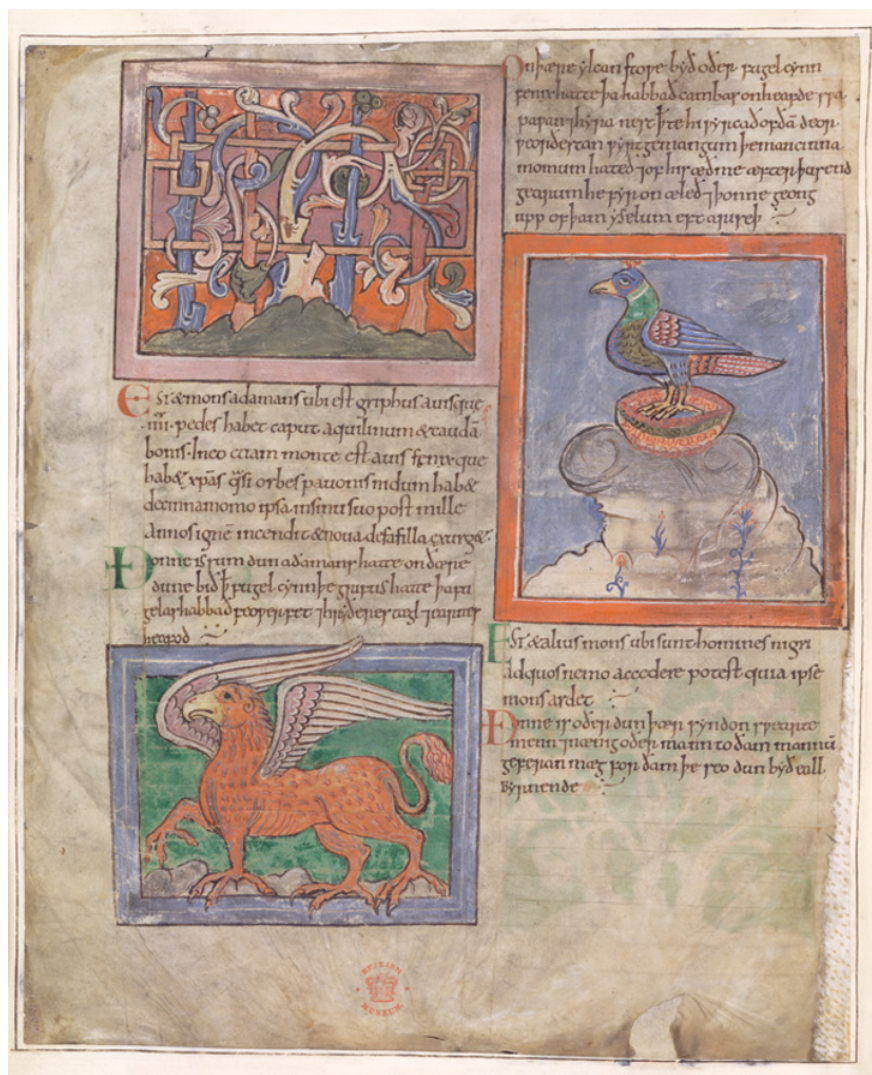 Est & mons adamans ubi est griphus auis que
.iiii. pedes habet caput aquilinum & caudā
bouis. In eo etiam monte est auis fenix que
hab& xpās q̄si orbes pauonis nidum hab&
de cinnamomo ipsa in sinu suo post mille
annos ignē incendit & noua de fafilla exurg&.
Ðonne is sum dun adamans hatte on ðære
dune bið ꝥ fugel cynn þe gripus hatte þa fu
gelas habbað feoƿer fet ⁊ hryðeres tægl ⁊ earnes
heafod
On þære ylcan stoƿe byð oðer fugel cynn
fenix hatte þa habbað cambas on heafde sƿa
paƿan ⁊ hyra nest ꝥte hi ƿyrcað of ðā deor
ƿeorðestan ƿyrtgemangum þe man cinna
momum hateð ⁊ of his æðme æfter þusend
gearum he fyr on æleð ⁊ þonne geong
upp of þam yselum eft ariseþ
Est & alius mons ubi sunt homines nigri
ad quos nemo accedere potest quia ipse
mons ardet
Ðonne is oðer dun þær syndon sƿearte
menn ⁊ nænig oðer mann to ðam mannū
geferan mæg for ðam þe seo dun byð eall
byrnende
BRITISH
MUSEUM